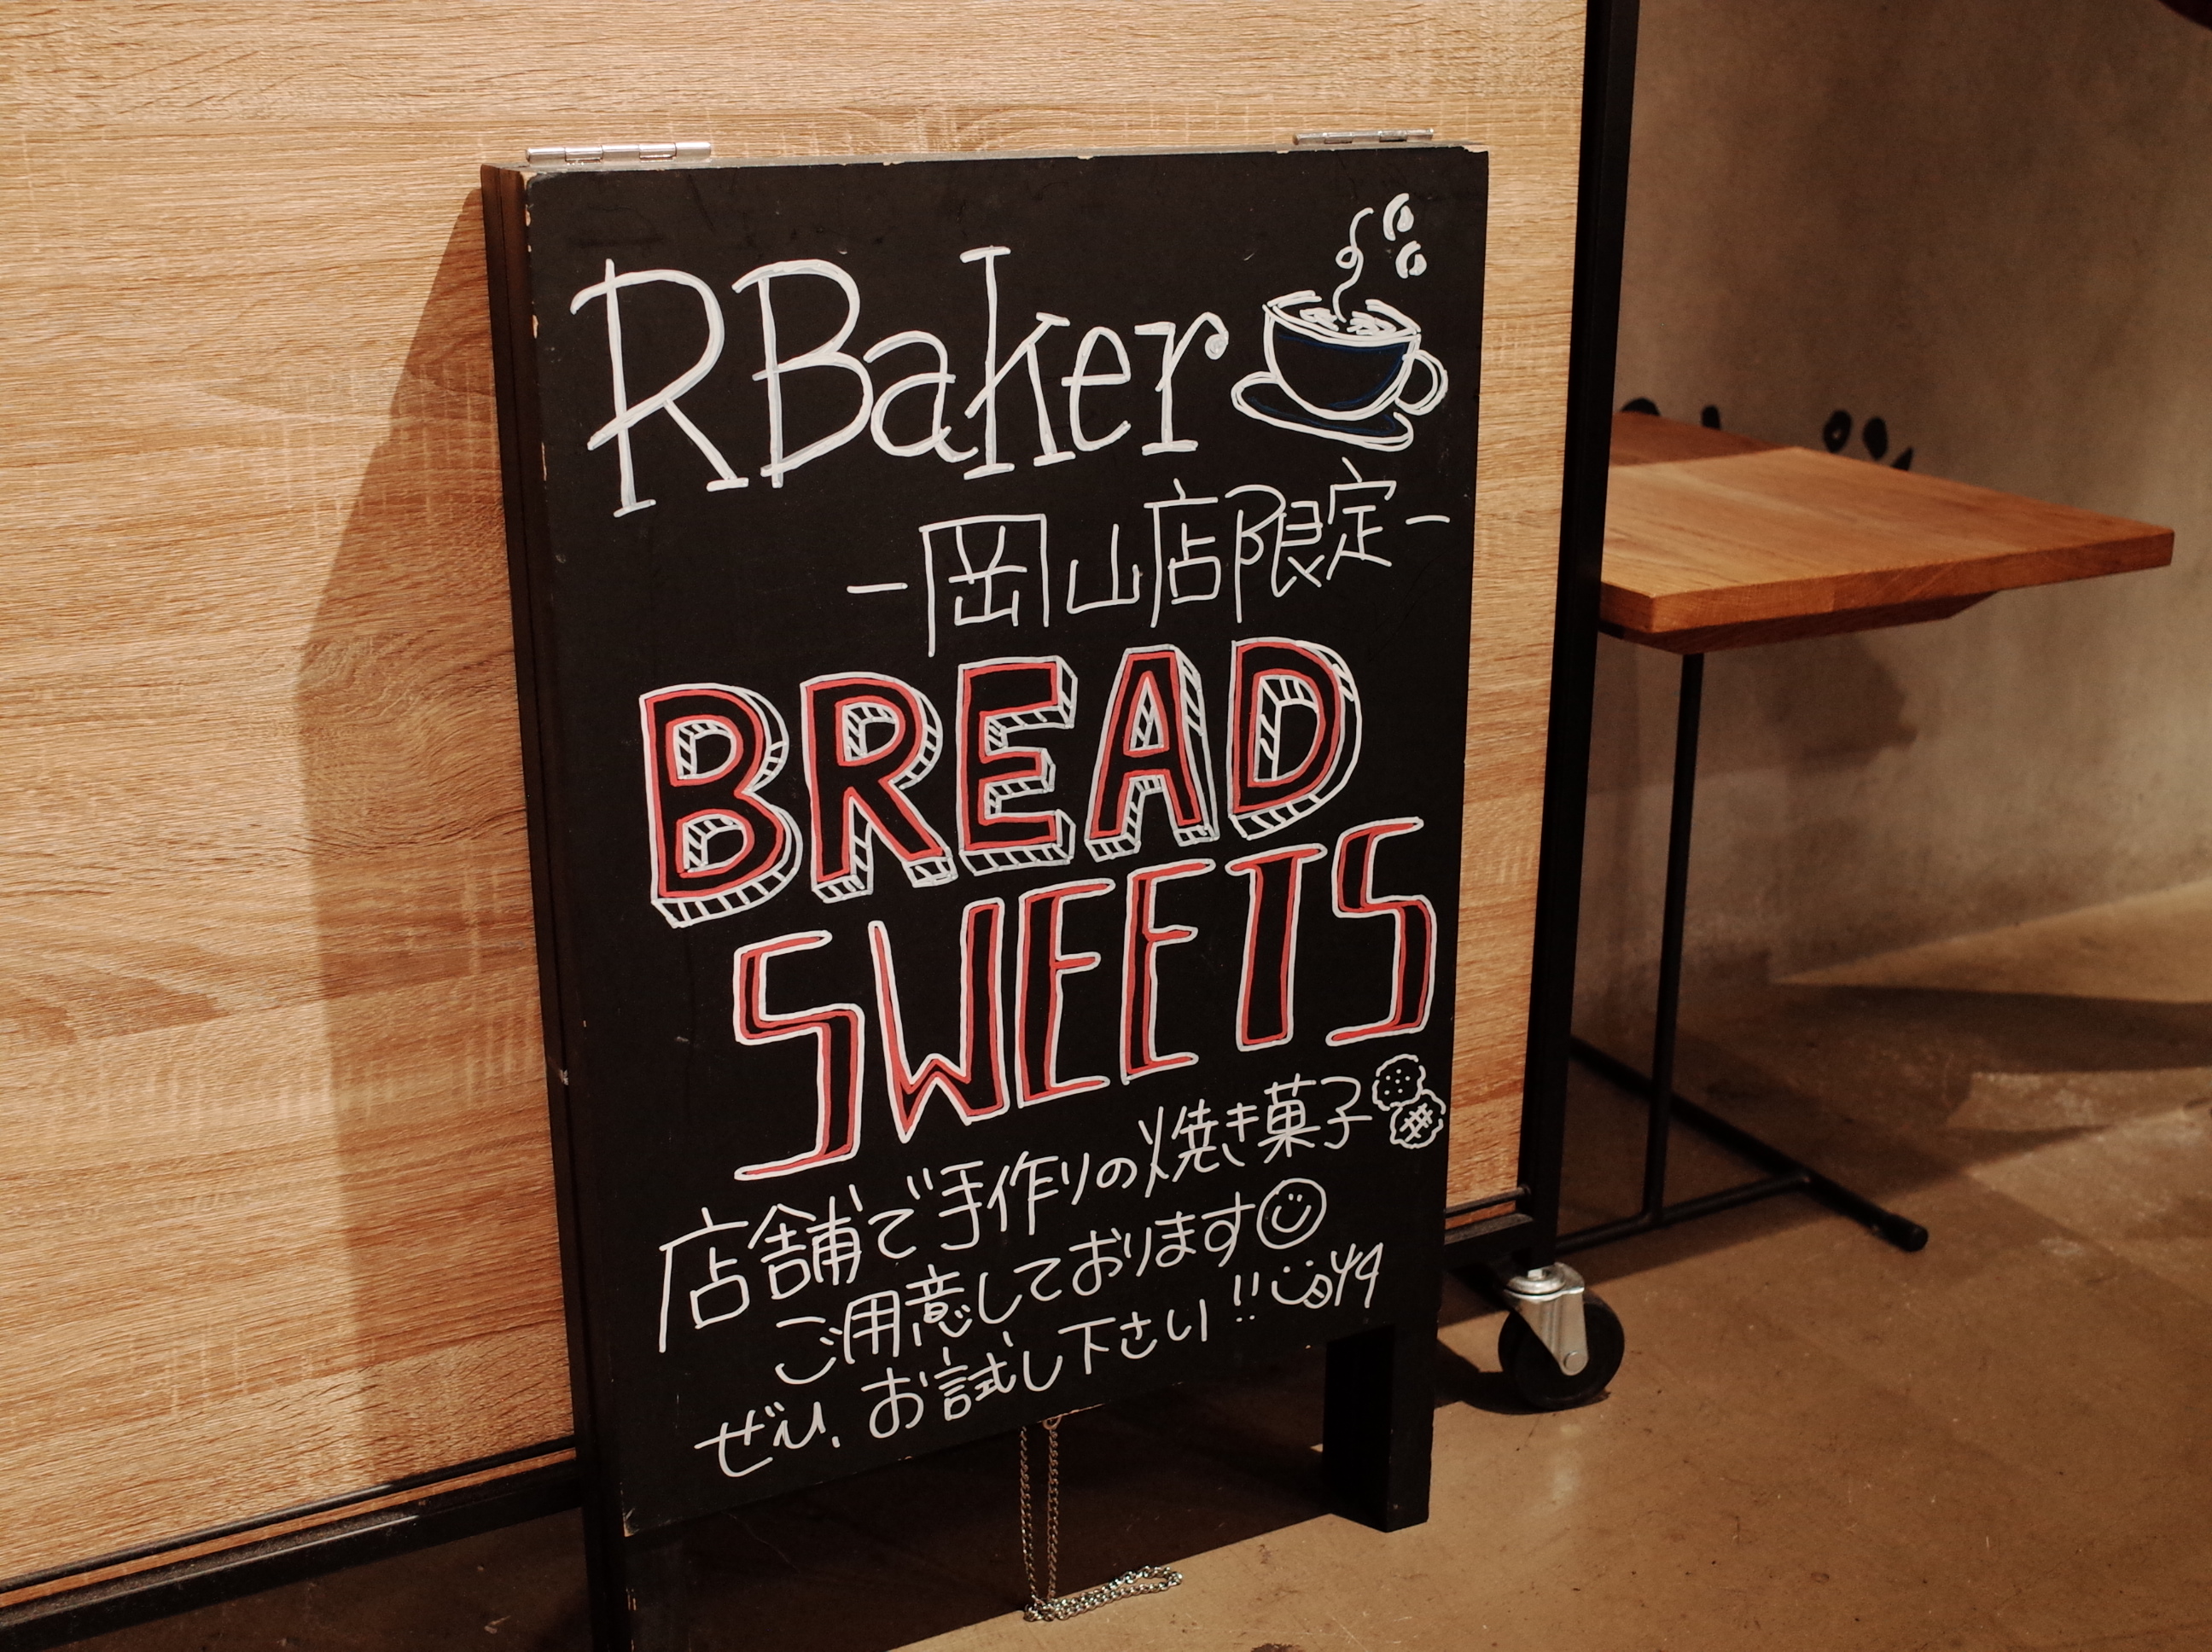 RBaker
-岡山店限定-
BREAD
SWEETS
店舗で手作りの焼き菓子
ご用意しております
ぜひ、お試し下さい!!